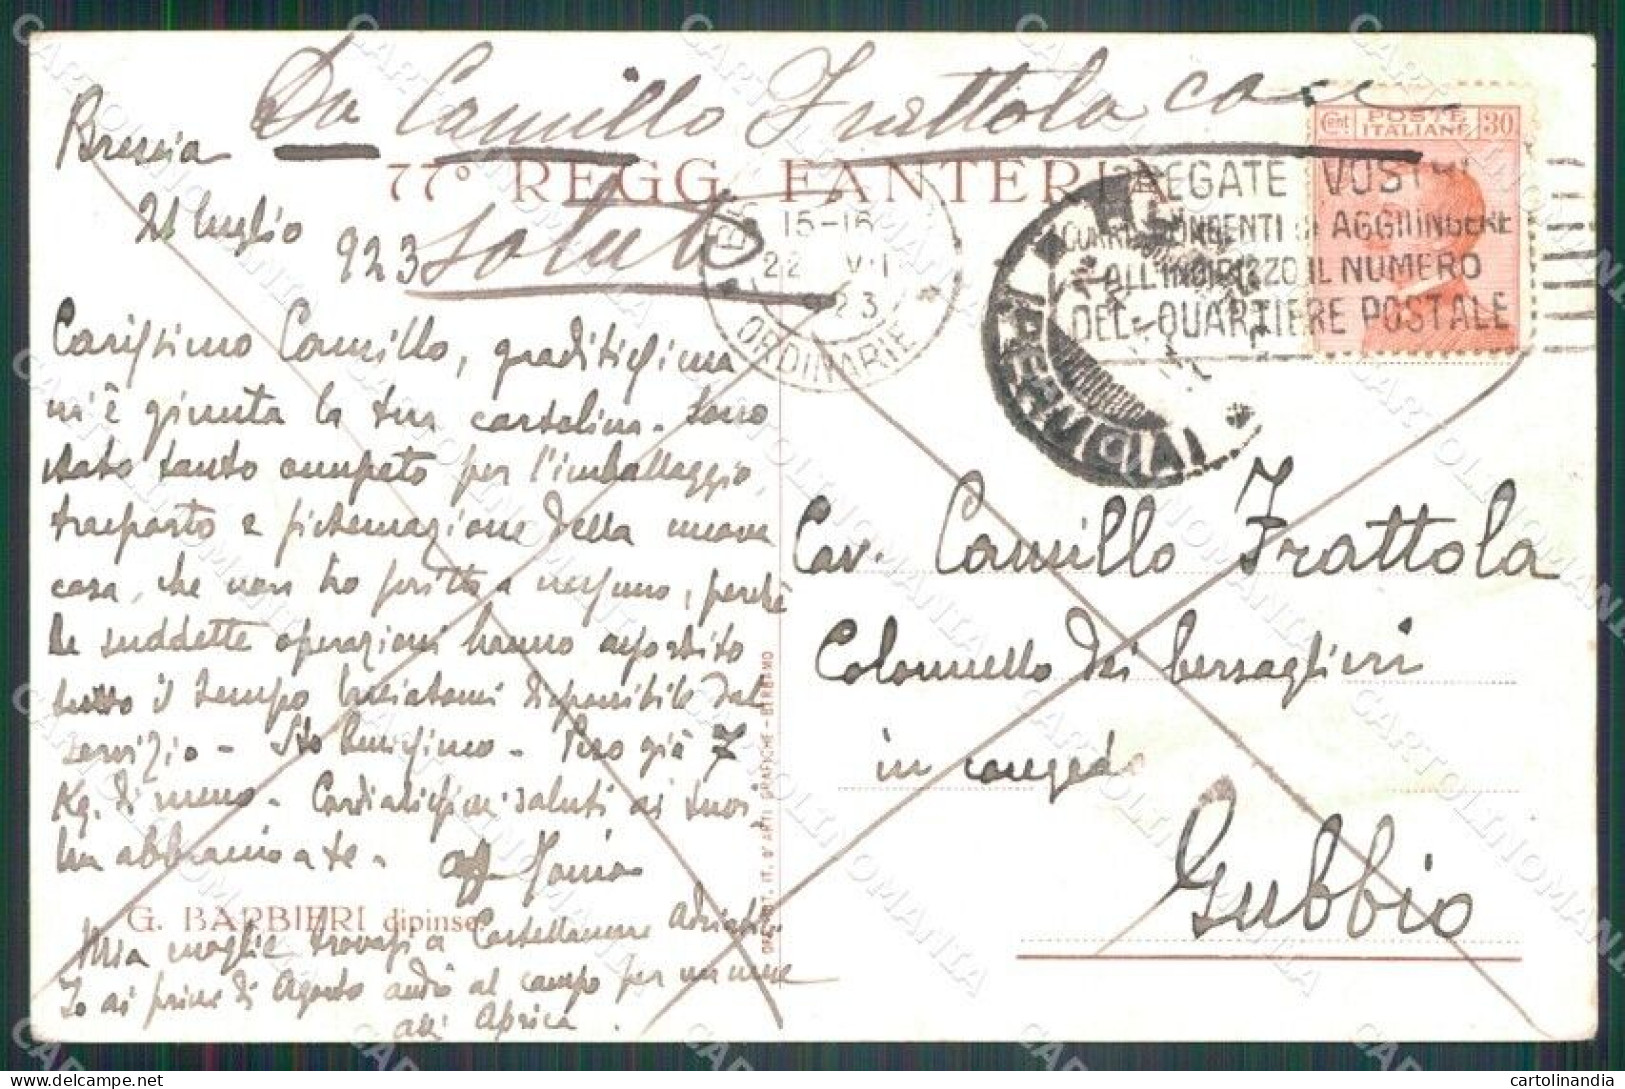 Da Camillo Frattola con
saluti
Brescia
21 luglio
923
77° REGG. FANTERIA
Carissimo Camillo, graditissima
m'è giunta la tua cartolina. Sono
stato tanto occupato per l'imballaggio,
trasporto e sistemazione della nuova
casa, che non ho scritto a nessuno, perché
le suddette operazioni hanno assorbito
tutto il tempo lasciatomi disponibile dal
servizio - Sto benissimo - Peso già 7
Kg. di meno. Cordialissimi saluti ai tuoi.
Un abbraccio a te.
aff.
G. BARBIERI dipinse
Mia moglie trovasi a Castellammare Adriatico
Io ai primi di Agosto andrò al campo per un mese
all' Aprica.
OFF. IST. IT. D'ARTI GRAFICHE - BERGAMO
15-16
22 VII
23
ORDINARIE
PREGATE I VOSTRI
CORRISPONDENTI DI AGGIUNGERE
ALL'INDIRIZZO IL NUMERO
DEL QUARTIERE POSTALE
Cent POSTE ITALIANE 30
Cav. Camillo Frattola
Colonnello dei bersaglieri
in congedo
Gubbio
CARTOLINOMANIA
cartolinandia